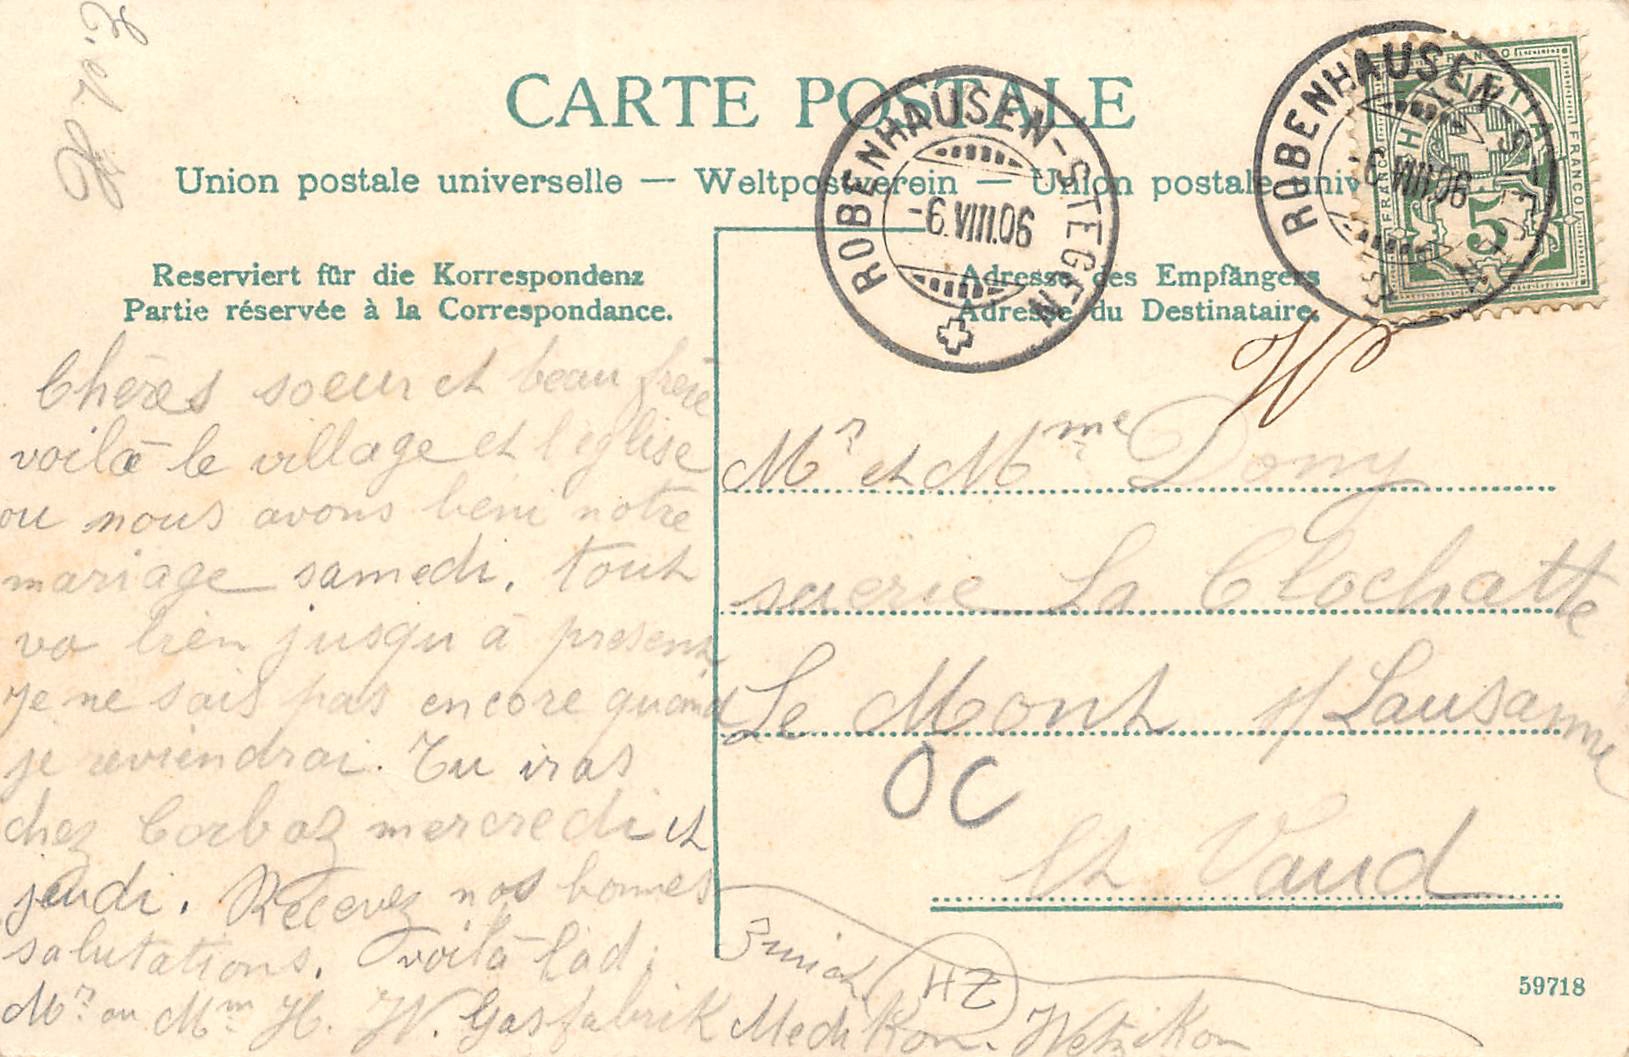 CARTE POSTALE
Union postale universelle — Weltpostverein — Union postale univ
Reserviert für die Korrespondenz
Partie réservée à la Correspondance.
Adresse des Empfängers
Adresse du Destinataire.
ROBENHAUSEN-STEGEN
-6.VIII.06
ROBENHAUSEN-STEGEN
-6.VIII.06
HELVETIA
FRANCO
FRANCO
5
Chères soeur et beau frère
voilà le village et l'eglise
ou nous avons beni notre
mariage samedi. tout
va bien jusqu à present
je ne sais pas encore quand
je reviendrai. Tu iras
chez Corboz mercredi et
jeudi. Recevez nos bonnes
salutations. voilà l'ad:
Mr ou Mm H. W. Gasfabrik Medikon. Wetzikon
Zurich
HZ
W
Mr et Mme Dony
scierie La Clochatte
Le Mont s/Lausanne
OC
Ct Vaud
59718